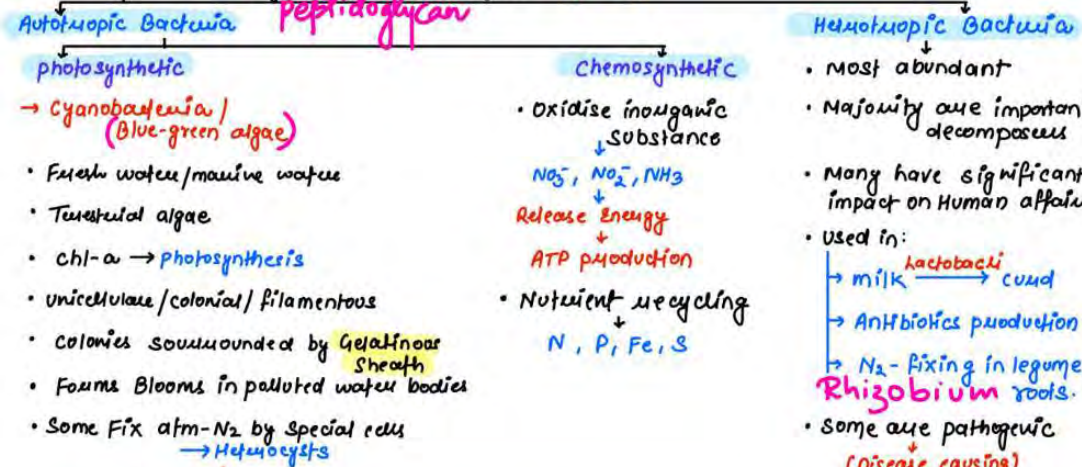 peptidoglycan
Autotropic Bacteria
photosynthetic
→ Cyanobacteria /
(Blue-green algae)
• Fresh water/marine water
• Terestrial algae
• chl-a → Photosynthesis
• unicellular/colonial/filamentous
• colonies sourrounded by Gelatinous
Sheath
• Forms Blooms in polluted water bodies
• Some Fix atm-N2 by special cells
→ Heterocysts
Chemosynthetic
• Oxidise inorganic
substance
NO3-, NO2-, NH3
Release Energy
ATP production
• Nutrient recycling
N, P, Fe, S
Heterotropic Bacteria
• Most abundant
• Majority are importan
decomposers
• Many have significant
impact on Human affair
• used in:
Lactobacli
→ milk → curd
→ Antibiotics production
→ N2-fixing in legume
Rhizobium roots.
• Some are pathogenic
(Disease causing)